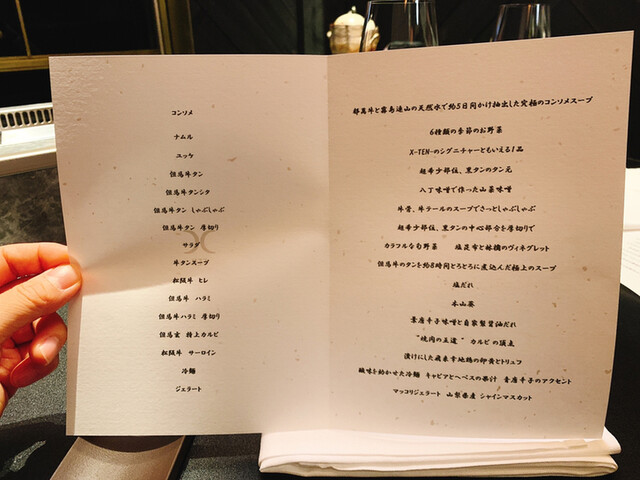 コンソメ
ナムル
ユッケ
但馬牛タン
但馬牛タンシタ
但馬牛タン しゃぶしゃぶ
但馬牛タン 厚切り
サラダ
牛タンスープ
松阪牛 ヒレ
但馬牛 ハラミ
但馬牛ハラミ 厚切り
但馬玄 特上カルビ
松阪牛 サーロイン
冷麺
ジェラート
都萬牛と霧島連山の天然水で約5日間かけ抽出した究極のコンソメスープ
6種類の季節のお野菜
X-TEN-のシグニチャーともいえる1品
超希少部位、黒タンのタン元
八丁味噌で作った山菜味噌
牛骨、牛テールのスープでさっとしゃぶしゃぶ
超希少部位、黒タンの中心部分を厚切りで
カラフルな旬野菜 塩昆布と林檎のヴィネグレット
但馬牛のタンを約8時間とろとろに煮込んだ極上のスープ
塩だれ
本山葵
青唐辛子味噌と自家製醤油だれ
"焼肉の王道" カルビの頂点
漬けにした飛来幸地鶏の卵黄とトリュフ
酸味を効かせた冷麺 キャビアとヘベスの果汁 青唐辛子のアクセント
マッコリジェラート 山梨県産 シャインマスカット